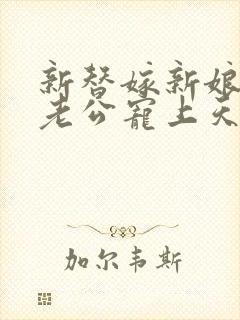 新替嫁新娘
老公宠上天
加尔韦斯